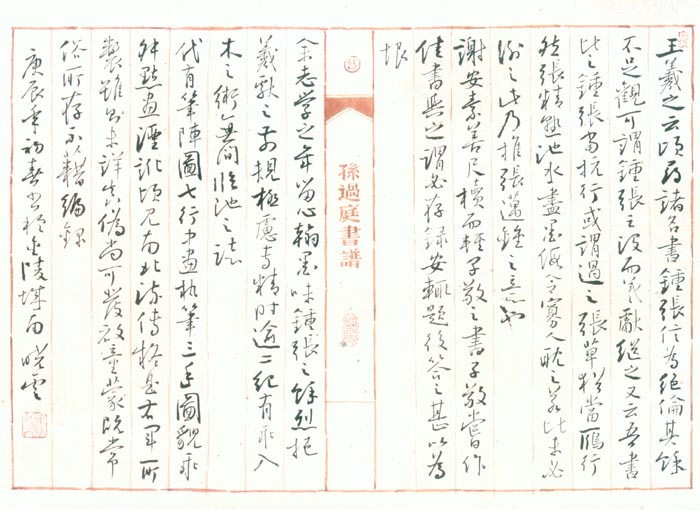 王羲之云頃尋諸名書鍾張信為絕倫其餘
不足觀可謂鍾張之沒而羲獻繼之又云吾書
比之鍾張當抗行或謂過之張草猶當鴈行
然張精熟池水盡墨假令寡人耽之若此未必
謝之此乃推張邁鍾之意也
謝安素善尺櫝而輕子敬之書子敬嘗作
佳書與之謂必存録安輒題後答之甚以為
恨
孫過庭書譜
余志學之年留心翰墨味鍾張之餘烈挹
羲獻之前規極慮專精時逾二紀有乖入
木之術無間臨池之志
代有筆陣圖七行中畫執筆三手圖貌乖
舛點畫湮訛頃見南北流傳疑是右軍所
製雖則未詳真偽尚可發啟童蒙既常
俗所存不藉編録
庚辰年初春書於金陵城南曉雲